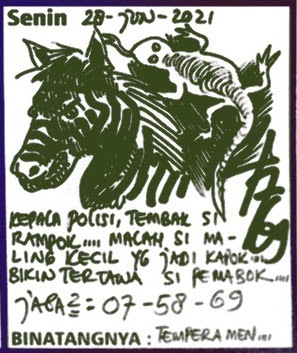 Senin 28-JUN-2021
KEPALA POLISI, TEMBAK SI
RAMPOK.... MALAH SI MA-
LING KECIL YG JADI KAPOK....
BIKIN TERTAWA SI PEMABOK....
JAGA2 = 07-58-69
BINATANGNYA : TEMPERAMEN....